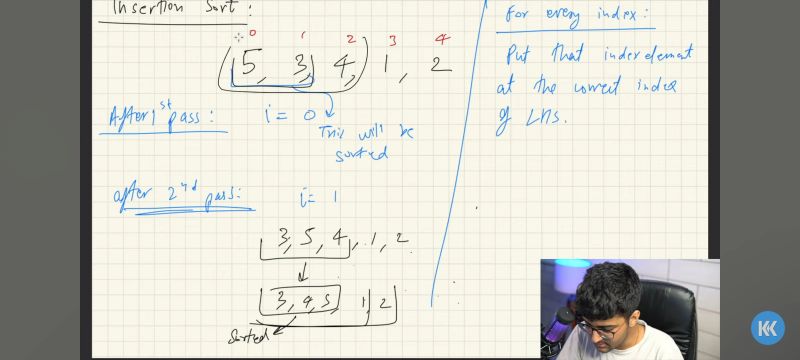 Insertion Sort:
0 1 2 3 4
5, 3, 4, 1, 2
After 1st pass: i = 0
This will be
sorted
after 2nd pass: i = 1
3, 5, 4, 1, 2
3, 4, 5, 1, 2
Sorted
For every index:
Put that index element
at the correct index
of LHS.
K